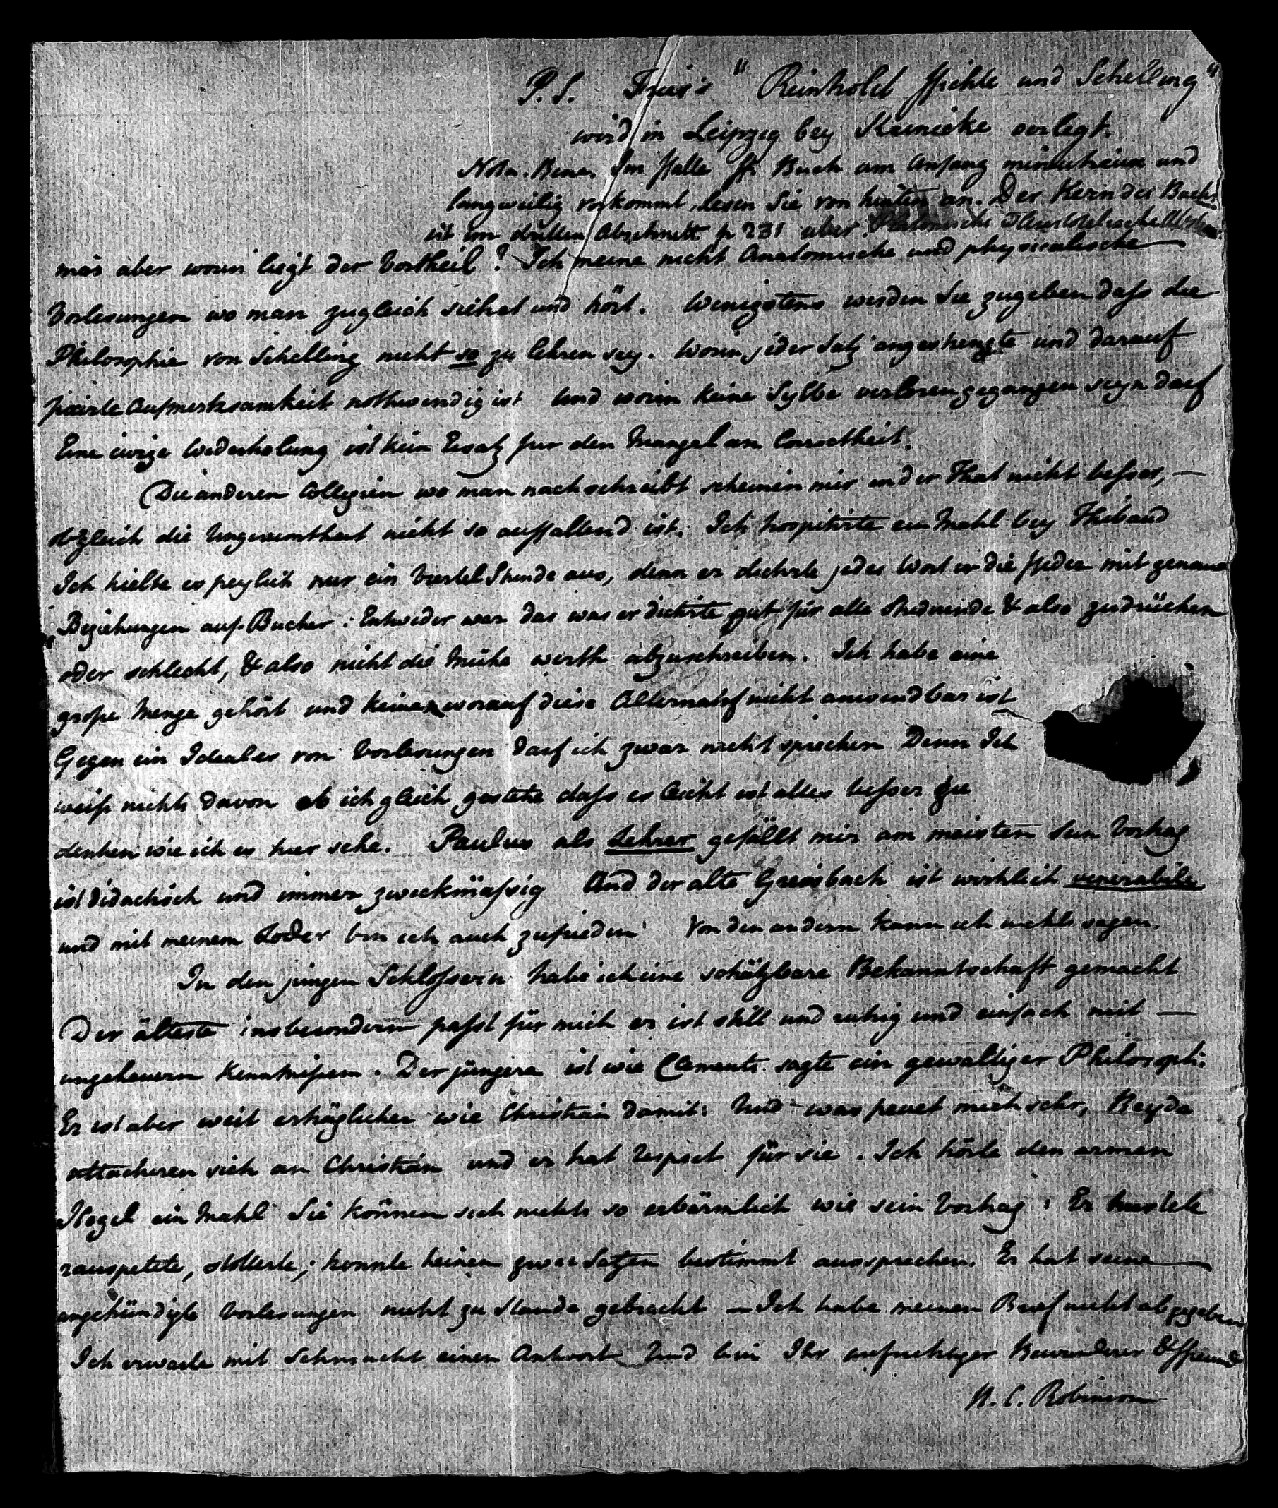 P.S. Fries's "Reinhold Fichte und Schelling"
wird in Leipzig bey Reinicke verlegt.
Nota. Bene. Im Falle Buch am Anfang und
langweilig vorkommt, lesen Sie von hinten an. Der Kern des Buchs
ist im dritten Abschnitt p 231 uber
mir aber worin liegt der Vortheil? Ich meine nicht Anatomische und physicalische
Vorlesungen wo man zugleich siehet und hört. Wenigstens werden Sie zugeben dass die
Philosophie von Schelling nicht so zu lehren sey. Worin jeder Satz angestrengte und darauf
Aufmerksamkeit nothwendig ist Und worin keine Sylbe verloren gegangen seyn darf
Eine ewige Wiederholung ist kein Ersatz fur den Mangel an
Die anderen Collegien wo man nachschreibt scheinen mir in der That nicht besser, —
obgleich die nicht so auffallend ist. Ich hospitirte ein Mahl bey Thibaud
Ich hielte es freylich nur ein Viertel Stunde aus, denn er dictirte jedes Wort in die Feder mit genauen
Beziehungen auf Bucher. Entweder war das was er dictirte gut für alle & also zu drücken
oder schlecht, & also nicht die Mühe werth abzuschreiben. Ich habe eine
grosse Menge gehört und keinen worauf diese Alternatif nicht anwendbar ist
Gegen ein Ideal von Vorlesungen darf ich zwar nicht sprechen Denn Ich
weiss nichts davon ob ich gleich gestehe dass es leicht ist alles besser zu
denken wie ich es hier sehe. Paulus als Lehrer gefällt mir am meisten Sein Vortrag
ist didactisch und immer zweckmässig Und der alte Griesbach ist wirklich venerabile
und mit meinem Loder bin ich auch zufrieden Von den andern kann ich nichts sagen.
In den jungen Schlossern habe ich eine schätzbare Bekanntschaft gemacht
Der älteste insbesondere passt für mich er ist still und ruhig und einfach mit —
ungeheuern Kenntnissen. Der jüngere ist wie Clements sagte ein gewaltiger Philosoph:
Er ist aber weit erträglicher wie Christian damit: Und was freuet mich sehr, Beyde
attacheren sich an Christian und er hat Respect für sie. Ich hörte den armen
Hegel ein Mahl Sie können sich nichts so erbärmlich wie sein Vortrag: Er hustete
räuspelte, stotterte, konnte keinen zwei Satzen bestimmt aussprechen. Er hat seine
angekündigte Vorlesungen nicht zu Stande gebracht — Ich habe meinen Brief nicht abgegeben
Ich erwarte mit Sehnsucht einen Antwort Und bin Ihr aufrichtiger Bewunderer & Freund
H. C. Robinson